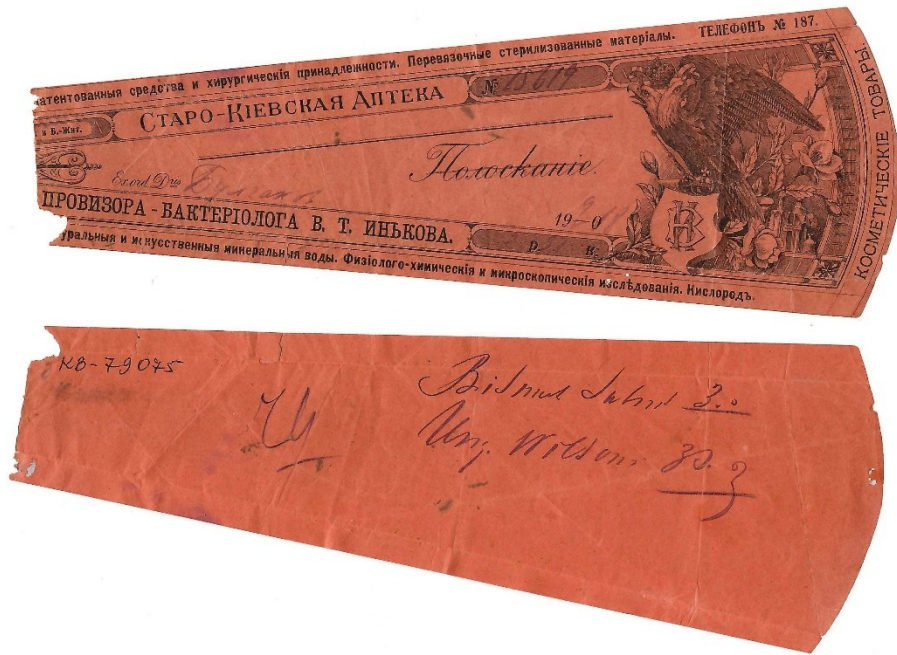 атентованныя средства и хирургическія принадлежности. Перевязочные стерилизованные матеріалы. ТЕЛЕФОНЪ № 187.
СТАРО-КІЕВСКАЯ АПТЕКА № 13619
и Б.-Жит.
Ex ord D-ris
Полосканіе.
ПРОВИЗОРА-БАКТЕРІОЛОГА В. Т. ИНЬКОВА.
19-0
Р. К.
уральныя и искусственныя минеральныя воды. Физіолого-химическія и микроскопическія изслѣдованія. Кислородъ.
КОСМЕТИЧЕСКІЕ ТОВАРЫ.
КВ-79075
Bismut Subnit 3.0
Ung. Wilson 30.